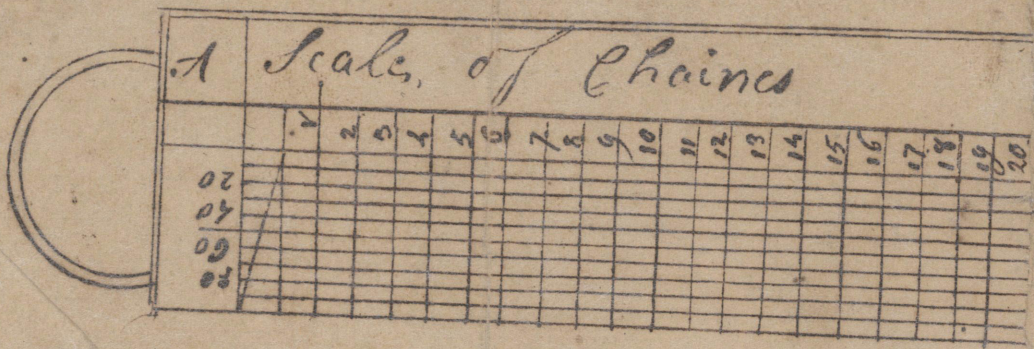 A Scale of Chaines
1 2 3 4 5 6 7 8 9 10 11 12 13 14 15 16 17 18 19 20
20
40
60